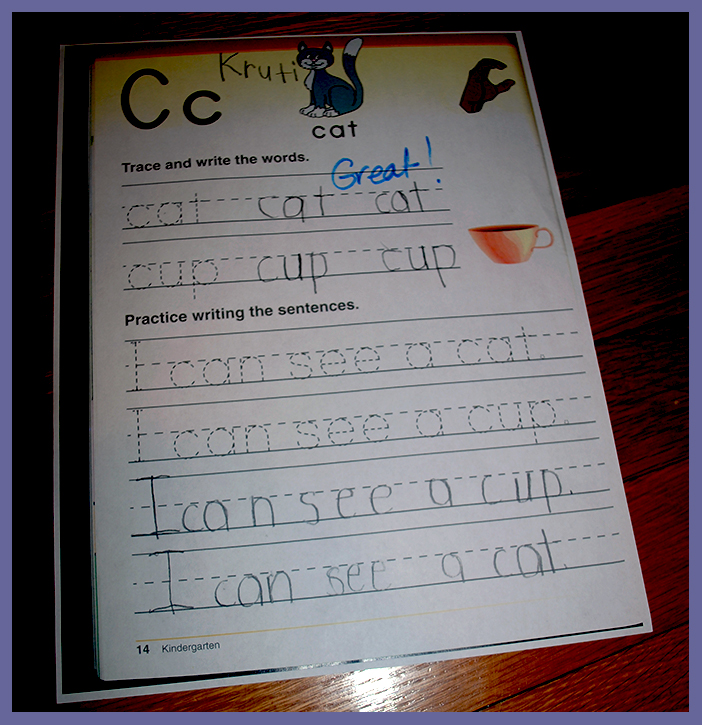 Kruti
Cc
cat
Trace and write the words.
Great!
cat cat cat
cup cup cup
Practice writing the sentences.
I can see a cat.
I can see a cup.
I can see a cup.
I can see a cat.
14 Kindergarten